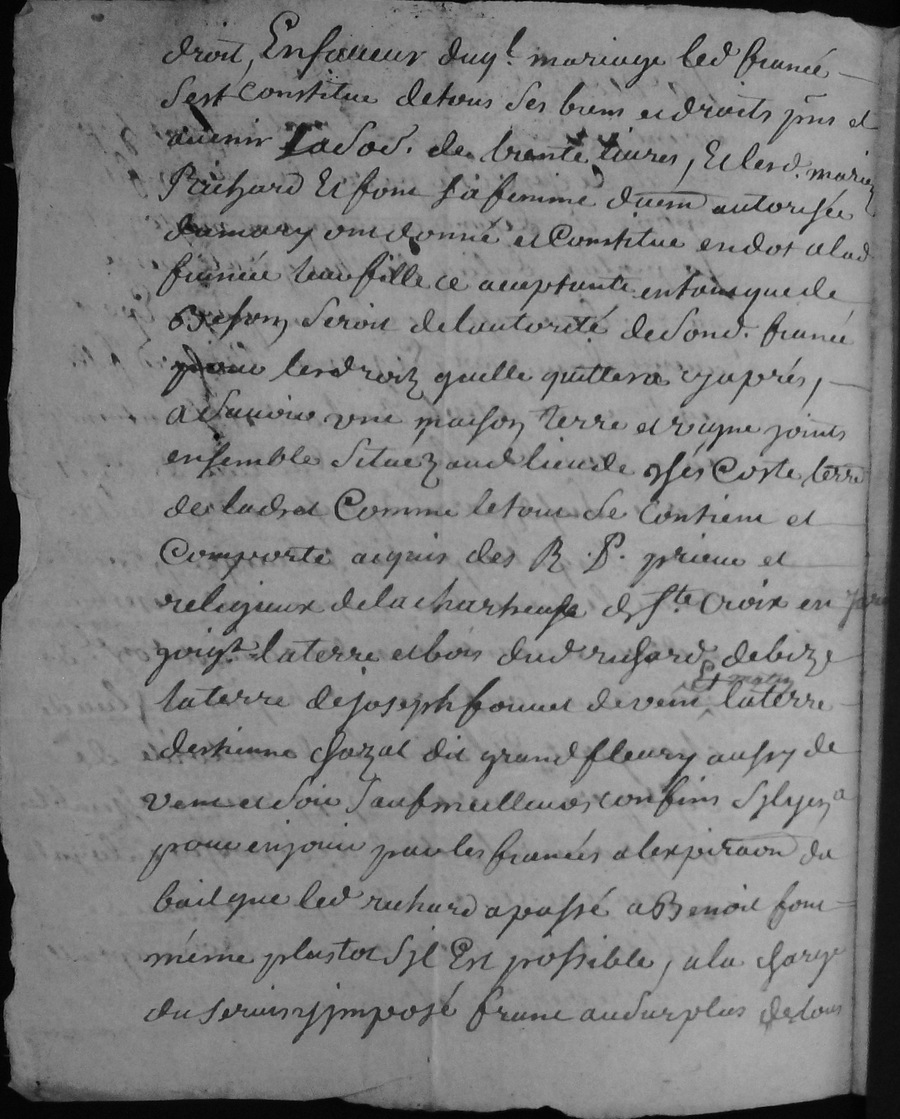 droit, Enfaueur dud.t mariage led fiancé
Sest Constitue detous Ses biens et droits pns et
auenir de trente liures, Et lesd. mariez
Richard Et font Sa femme duem autorisée
dumary ont donné et Constitue endot alad
fiancée leur fille ce acceptante entant que de
Besoin Seroit delautorité deSond. fiancé
pour lesdroitz quelle quittera cyaprés,
ascauoir une maison terre et vigne joints
ensemble Situez aud lieu de Coste terre
de ladret Comme letout Se Contient et
Comporte acquis des R. P. prieur et
religieux delachartreuse de Ste Croix en Jarez
joigt. laterre etbois dud richard debize
Et matin
laterre dejoseph fournel devent laterre
destienne chazal dit grandfleury aussy de
vent etSoir Sauf meilleurs confins Sylyen a
pour enjouir parles fiancés alexpiraon du
bail que led richard apassé aBenoit four
méme plustot Syl Est possible, ala charge
duSeruisyimposé franc auSurplus detous